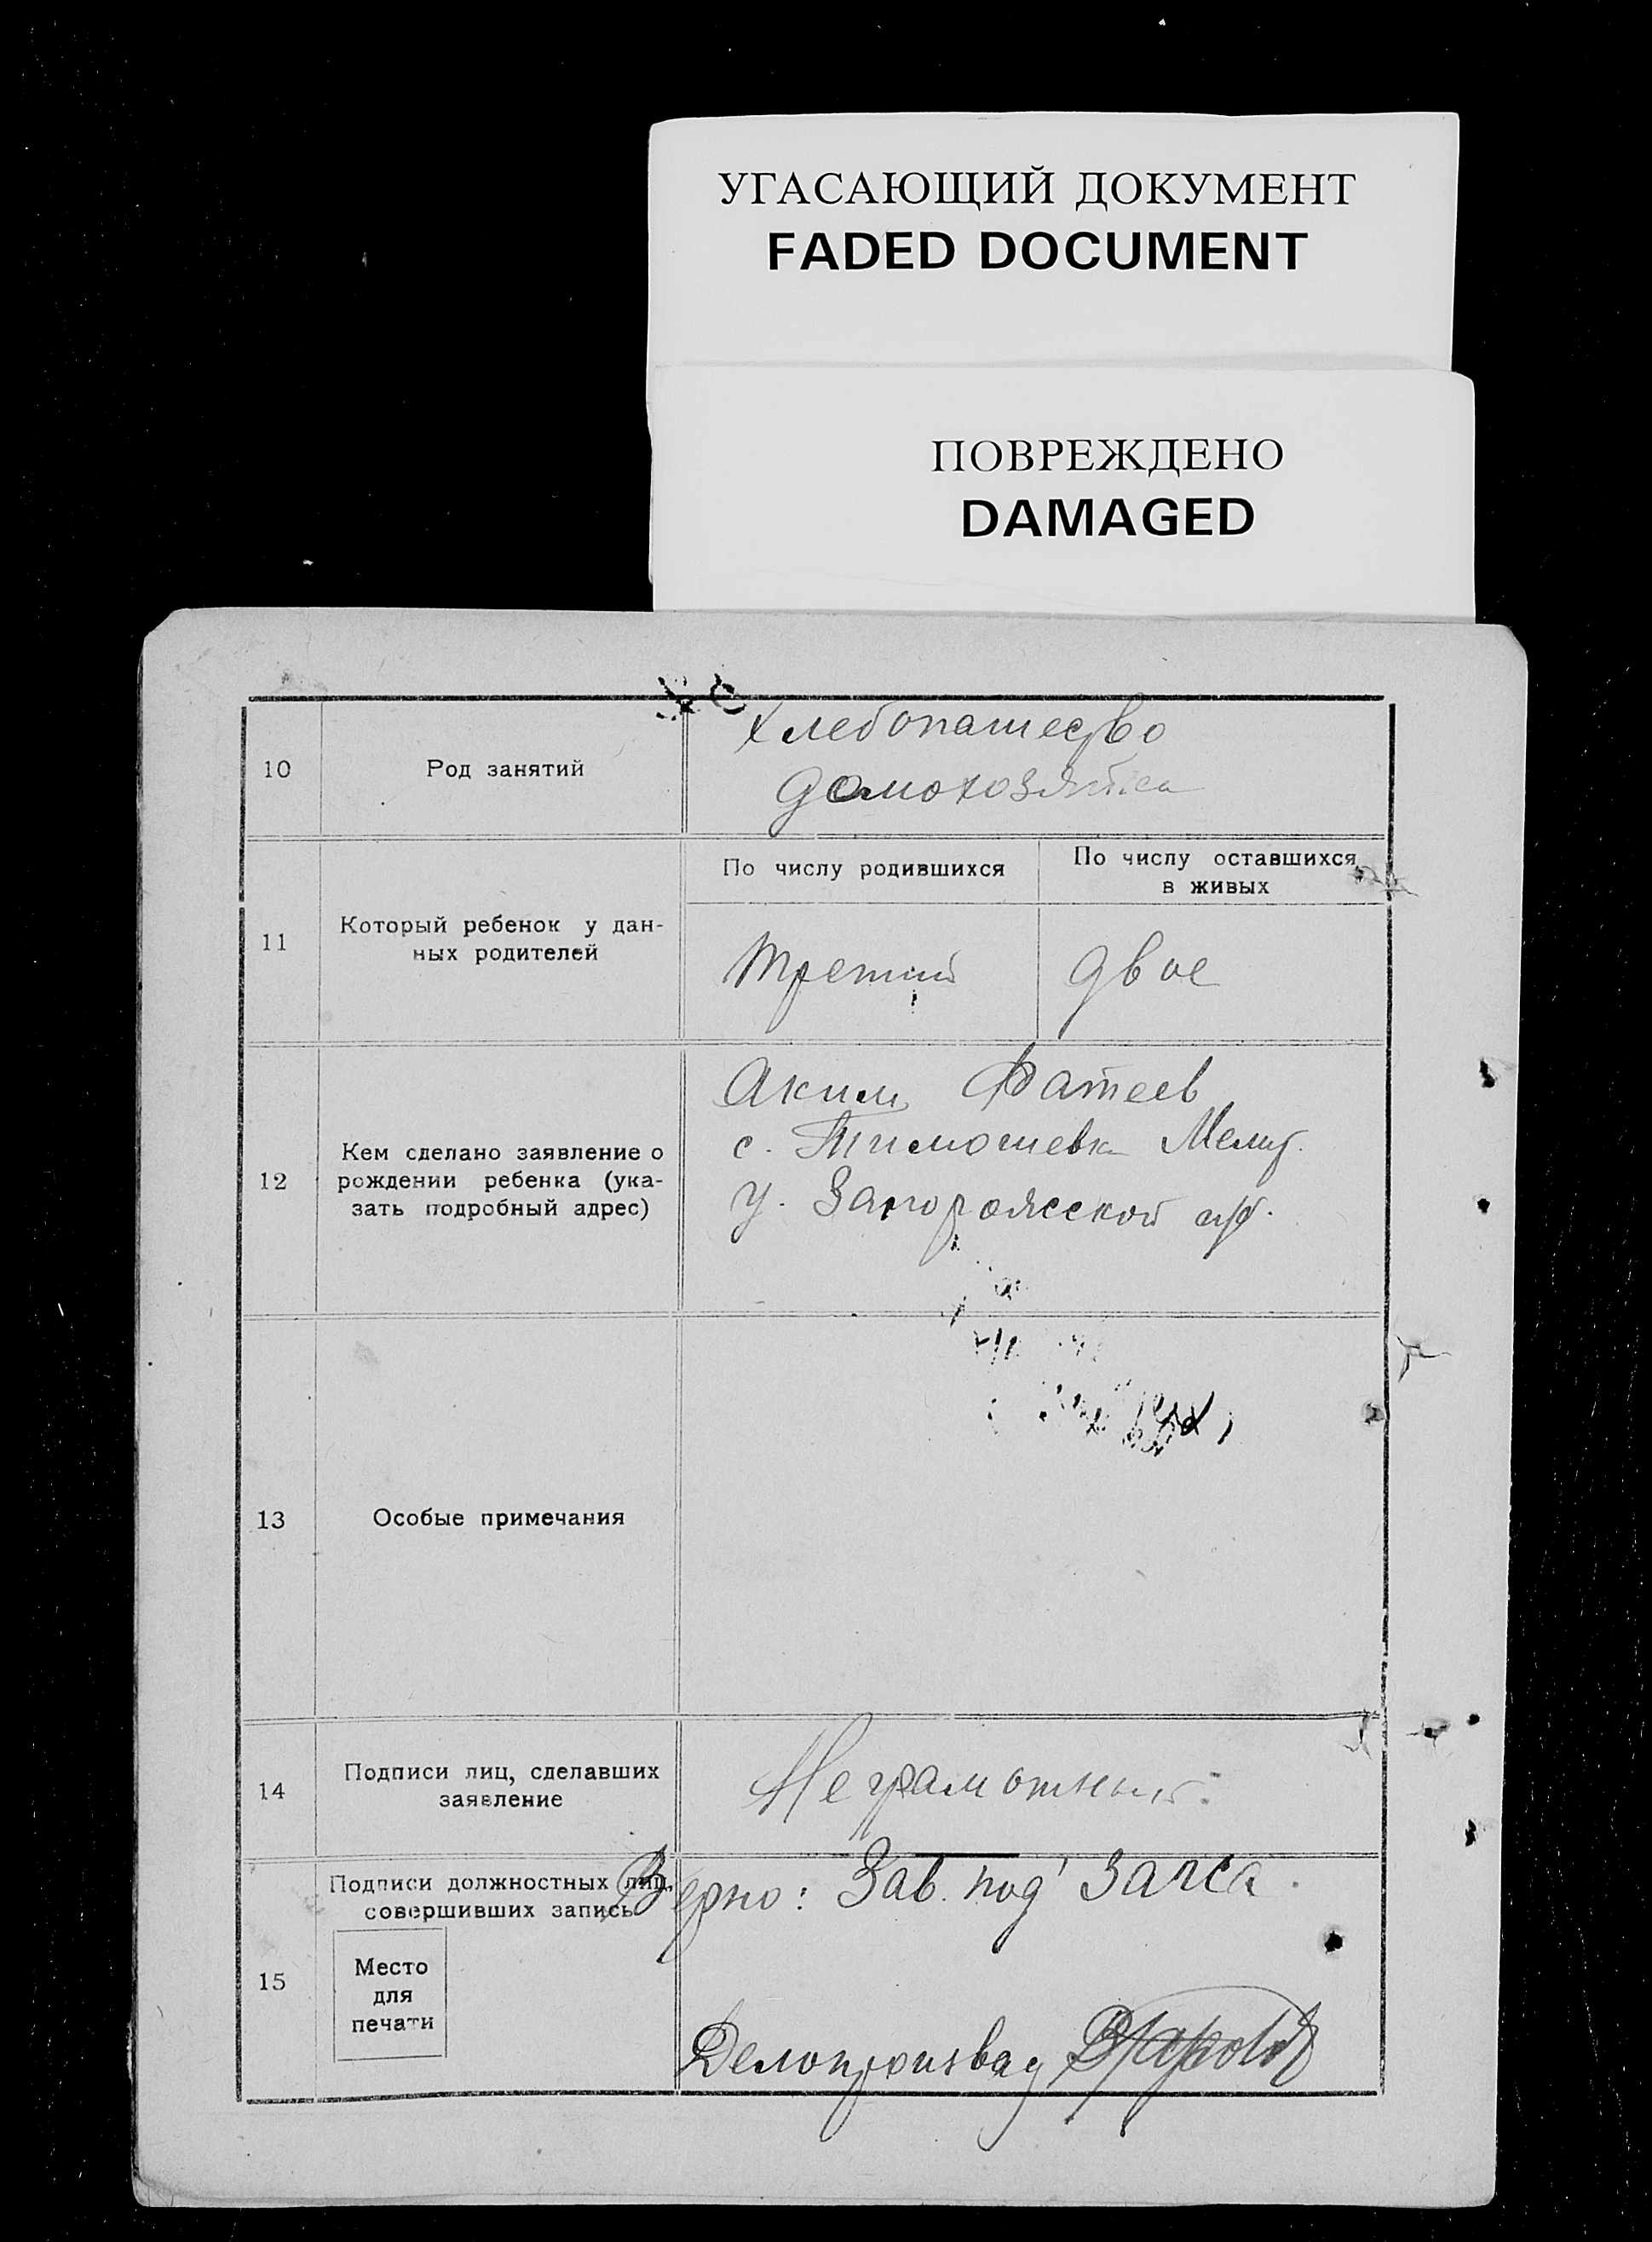 УГАСАЮЩИЙ ДОКУМЕНТ
FADED DOCUMENT
ПОВРЕЖДЕНО
DAMAGED
10
Род занятий
Хлебопашество
домохозяйка
11
Который ребенок у дан-
ных родителей
По числу родившихся
По числу оставшихся
в живых
Третий
двое
12
Кем сделано заявление о
рождении ребенка (ука-
зать подробный адрес)
Аким Фатеев
с. Тимошевка Мелит.
у. Запорожской губ.
13
Особые примечания
14
Подписи лиц, сделавших
заявление
Неграмотный
15
Подписи должностных лиц,
совершивших запись
Место
для
печати
Верно: Зав. под' Загса.
Делопроизвод